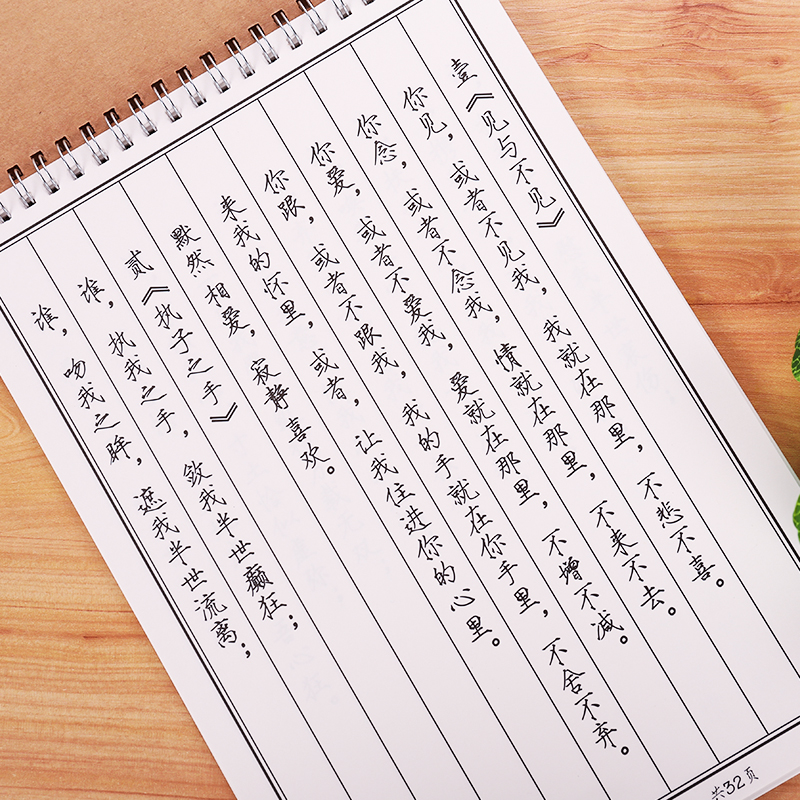 壹《见与不见》
你见，或者不见我，我就在那里，不悲不喜。
你念，或者不念我，情就在那里，不来不去。
你爱，或者不爱我，爱就在那里，不增不减。
你跟，或者不跟我，我的手就在你手里，不舍不弃。
来我的怀里，或者，让我住进你的心里。
默然相爱，寂静喜欢。
贰《执子之手》
谁，执我之手，敛我半世癫狂；
谁，吻我之眸，遮我半世流离；
共32页